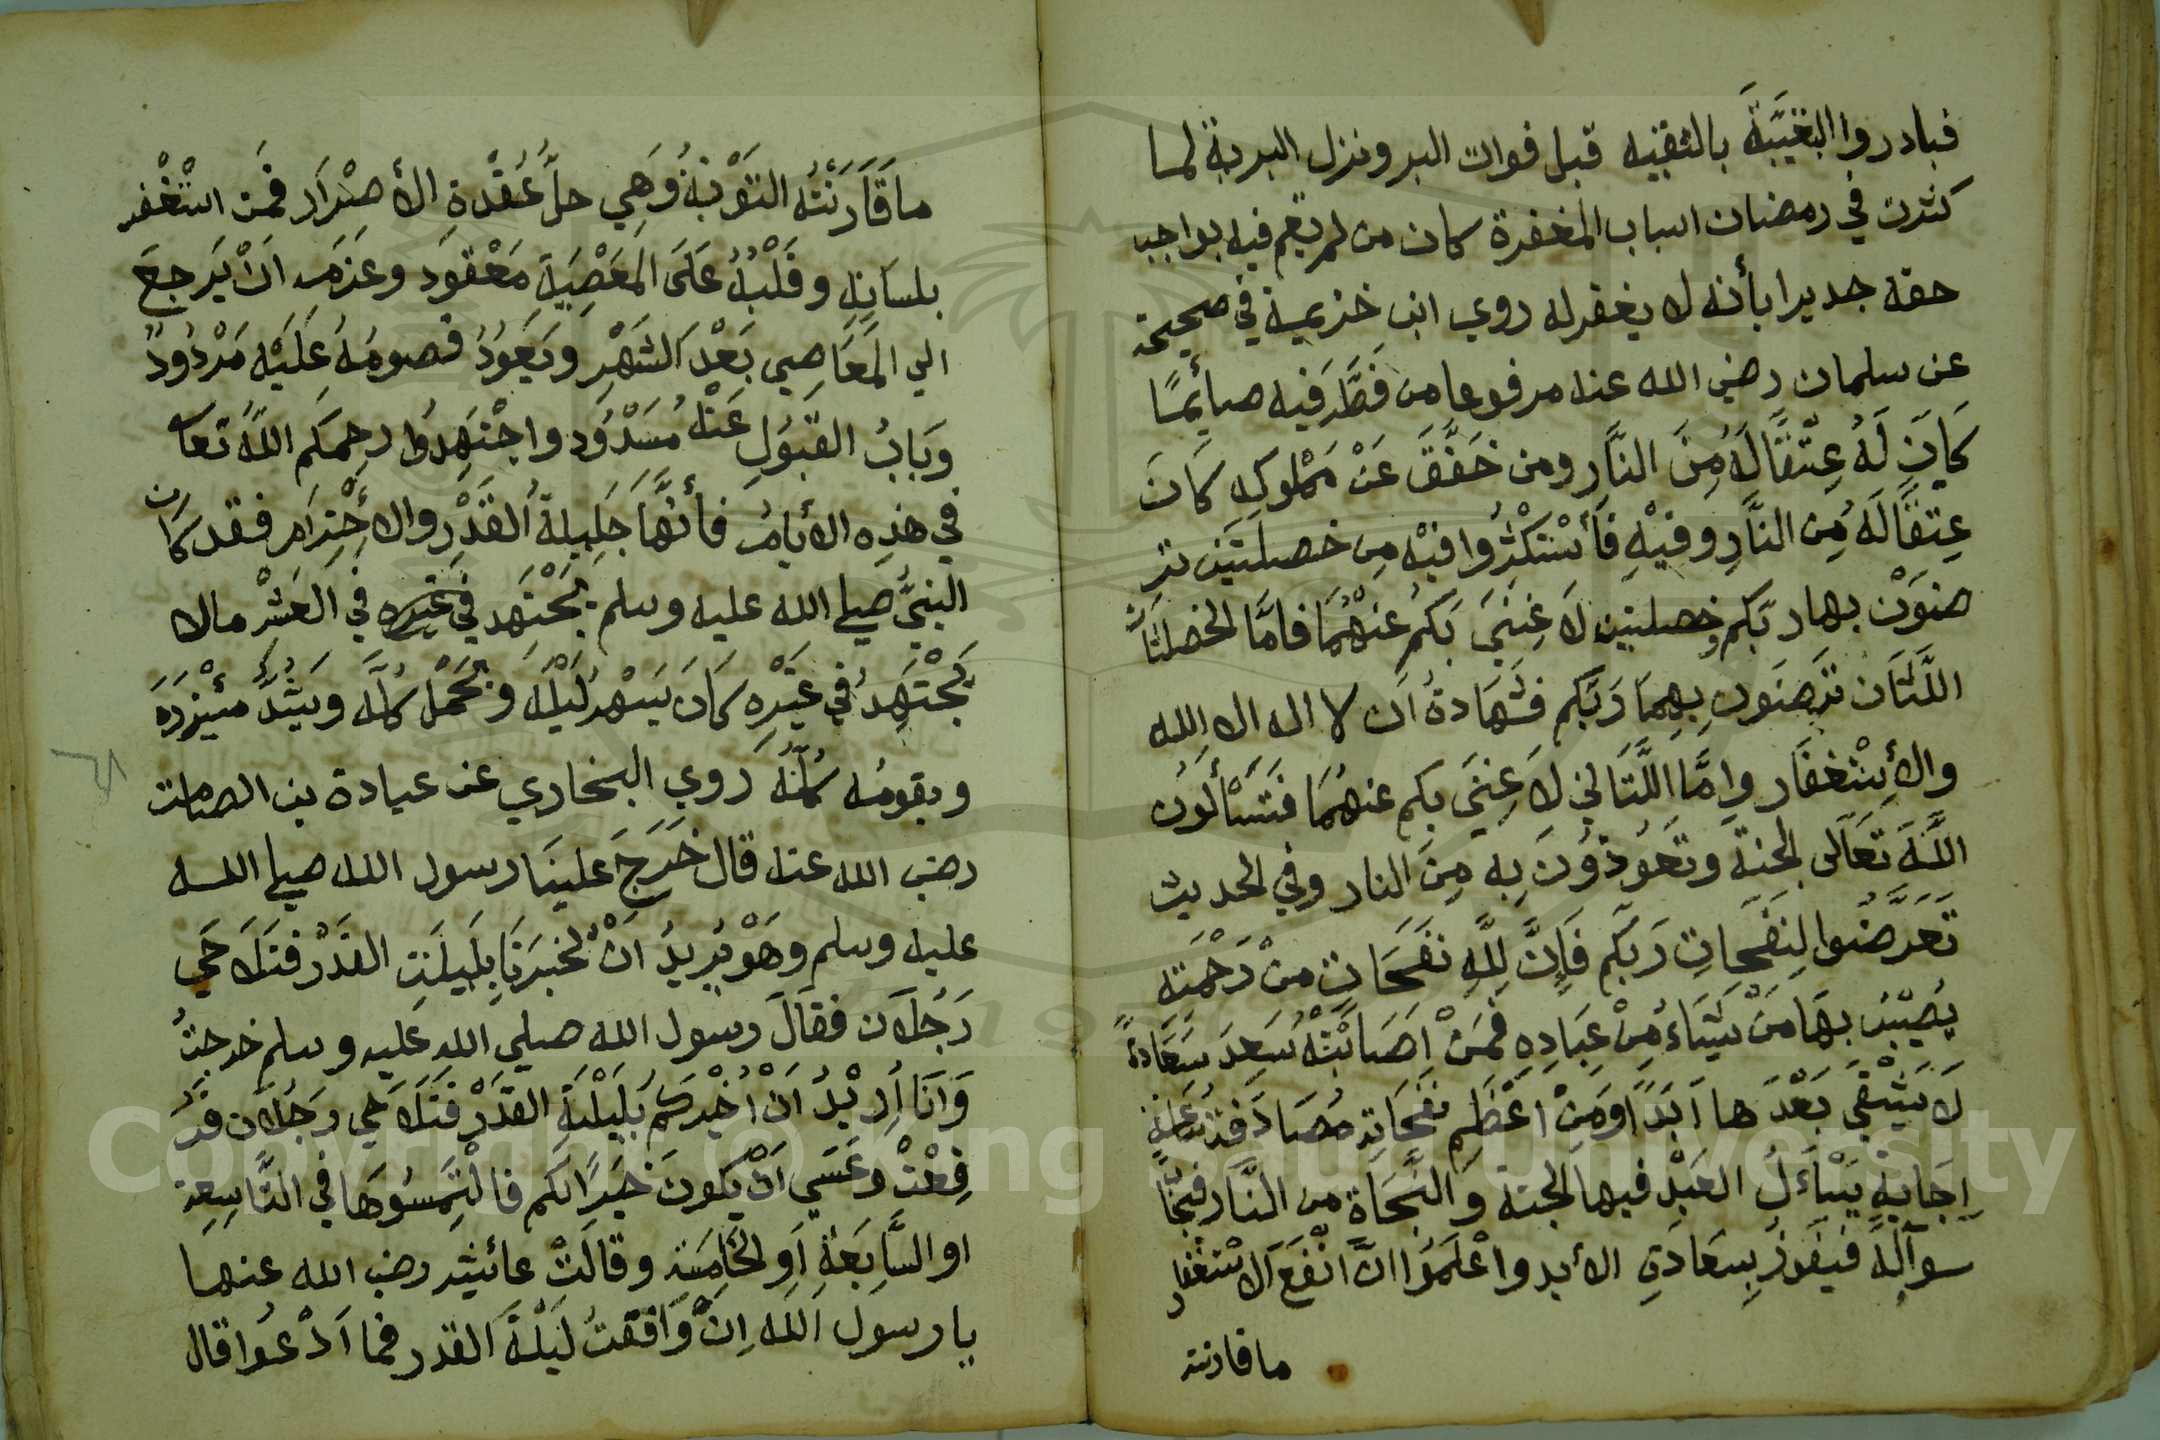 فبادروا البغيَّبَةَ بالتقيه قبل فوات البر ونزل البرية لما
كثرت في رمضان اسباب المغفرة كان من لم يقم فيه بواجب
حقه جديرا بأنه لا يغفر له روي ابن خزيمة في صحيحه
عن سلمان رضي الله عنه مرفوعا من فَطَّرَ فيه صائمًا
كَانَ لَهُ عِتْقًا لَهُ مِنَ النَّارِ ومن خَفَّفَ عَنْ مَمْلوكِهِ كَانَ
عِتقًا لَهُ مِن النَّارِ وفيْهِ فَأَسْتَكْثِرُوا فيْه مِن خصلتَين تر
ضوَنْ بهما ربكم وخصلتين لا غِنَي بَكمُ عنْهُمَا فامَّا الخصلتَان
اللَّتَان ترَضَون بِهِمَا رَبَّكم فشهَادةُ اَن لا اله الا الله
والأِسْتغفَار وامَّا اللَّتَا لي لاَ غِنَي بكم عنهُمَا فتَسْأَلُون
اللَّهَ تَعَالى الجنة وتَعُوذُونَ بِهِ مِنَ النار وفي الحديث
تَعَرَّضُوا لِنفَحَاتِ رَبّكم فَإِنَّ لِلّهِ نفَحَاتٍ مِنْ رَحْمَتِه
يُصيْبُ بهَا مَنْ يَشَاءُ مِنْ عِبَادِهِ فَمَنْ اَصَابَتْهُ سَعِدَ سَعَادةً
لاَ يَشْقَي بَعْدَها اَبَدًا وَمِنْ اعْظَمِ نفحَاتِهِ مُصَادَفَة سَاعَةِ
اِجَابَةٍ يَسْأَلُ العَبْد فيها الجنة وَالنَّجَاة من النَّار فيُجَا
سوآلهُ فيَفوزُ بسعَادَةِ الأبد واعْلَمُوا انَّ انْفَعَ الاسْتغفَار
ما قارنته
ما قَارَنَتْهُ التوْبَةُ وَهِي حلُّ عُقْدةِ الأصْرَار فَمَن استْغْفر
بلسَانِهِ وقَلْبُهُ عَلَى المَعْصِيَةِ مَعْقود وعزمه انْ يَرجعَ
الي المَعَاصِي بَعْدَ الشهْرِ ويَعَودُ فصومُهُ عَلَيْه مَرْدُودٌ
وَبَابُ القَبُولِ عَنْهُ مُسَدْوُد واجْتَهِدُوا رحِمَكم اللَّهُ تعَا
في هَذِه الأيامُ فأنهَّا جَلِيلة القَدْرِ والاحْتِرَام فقد كان
النبيَّ صلي الله عليه وسلم يَجْتَهِد في غَيْرِه في العَشْرِ مالا
يَجْتَهِدُ في غَيْرِه كانَ يَسْهر لَيْلَهُ ويَحْمَل كلَّه ويَشُدُّ مَئيْزَرَهُ
ويقومُه كُلَّهُ رَوي البخاري عَن عبادة بن الصامت
رضي الله عنه قال خَرَجَ علينَا رسول الله صلي الله
عليه وسلم وهَوْ يُرِيدُ اَنْ يُخبَرنَا بِلَيلَتِ القَدْر فتَلاَحَي
رَجُلاَن فقالَ رسول الله صلي الله عليه وسلم خرجتُ
وَانَا اُرِيْدُ اَنْ اُخْبِرَكم بَلَيْلَةِ القَدْرِ فَتَلاَحَي رجُلاَن فَرُ
فِعْتْ وعَسَي اَنْ يَكونَ خَيرًا لكم فالتَمِسُوهَا في التَّاسِعة
او السَّابِعَةِ اَو الخَامِسَة وقالَتْ عائشه رضي الله عنها
يا رسولَ الله اِنْ وَافقتُ لَيْلَةَ القدر فما اَدْعُوا قال